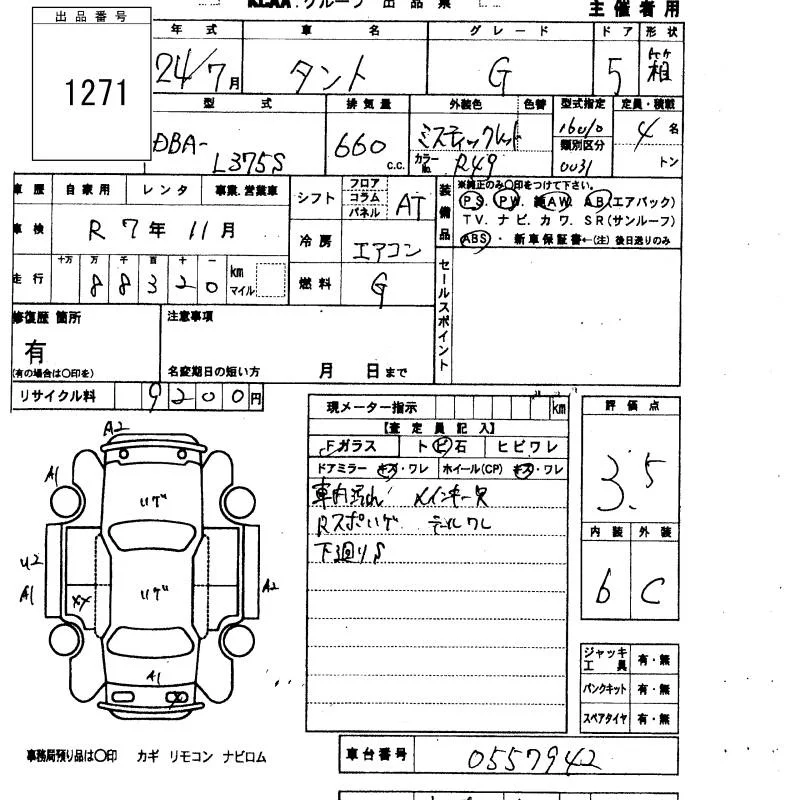 KCAA. グループ 出品票
主催者用
出品番号
1271
年式 車名 グレード ドア 形状
24/7月 タント G 5 箱
型式 排気量 外装色 色替 型式指定 定員・積載
DBA-L375S 660 c.c. ミスティックレッド カラーNo. R49 16010 類別区分 0031 4名 トン
車歴 自家用 レンタ 事業.営業車
車検 R7年11月
走行 十万 万 千 百 十 一 km マイル
88320
シフト フロア コラム パネル AT
冷房 エアコン
燃料 G
装備品 ※純正のみ〇印をつけて下さい。
PS. PW. 純AW. AB(エアバック)
TV. ナビ. カワ. SR(サンルーフ)
ABS・新車保証書←(注) 後日送りのみ
セールスポイント
修復歴 箇所
有
(有の場合は〇印を)
注意事項
名変期日の短い方 月 日まで
リサイクル料 9200円
現メーター指示 km
【査定員記入】
Fガラス トビ石 ヒビワレ
ドアミラー キズ・ワレ ホイール(CP) キズ・ワレ
車内汚れ メインキー欠
Rスポいげ テールワレ
下廻りS
評価点
3.5
内装 外装
b C
A2
A1
いげ
U2
A1
XX
いげ
A2
A1
X
ジャッキ工具 有・無
パンクキット 有・無
スペアタイヤ 有・無
事務局預り品は〇印 カギ リモコン ナビロム
車台番号 0557942